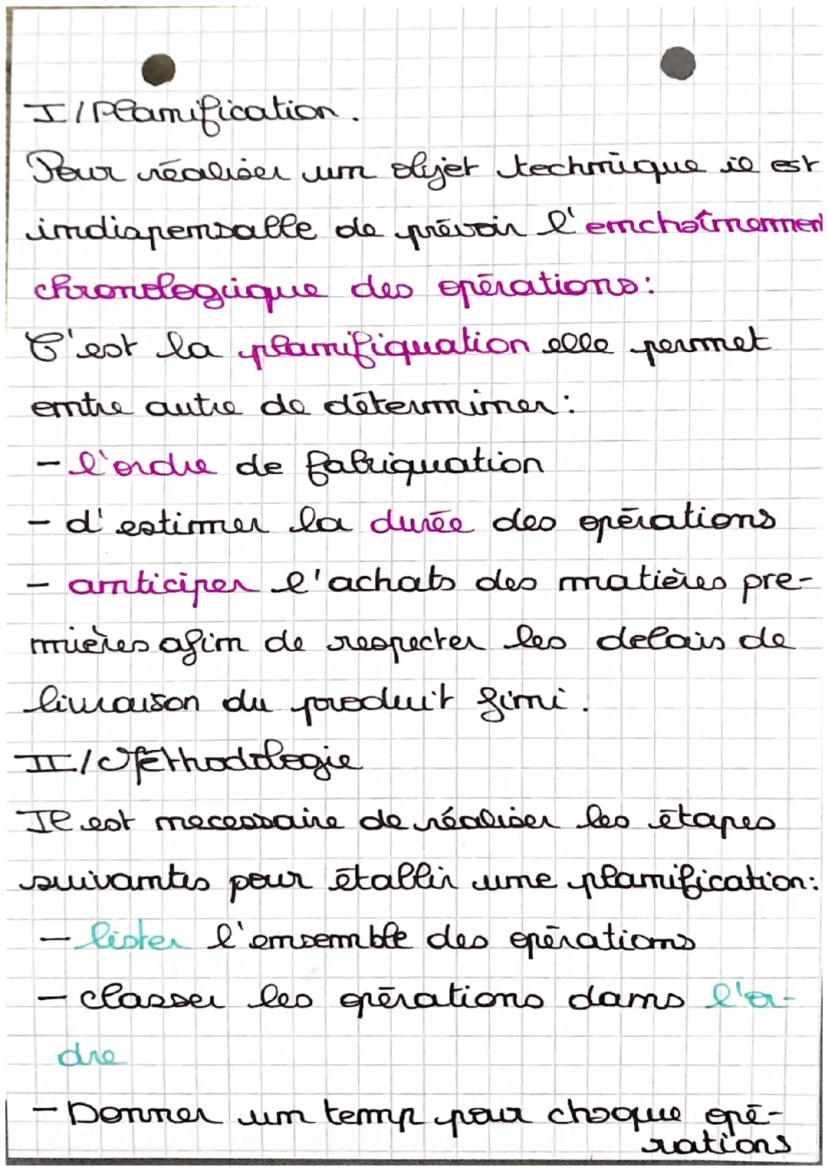 I/Planification.
Pour réaliser un objet technique il est
indiapensable de prévoir l'enchaînement
chronologique des opérations:
C'est la planifiquation elle permet
entre autre de déterminer:
- l'ordre de fabriquation
- d'estimer la durée des opérations
- anticiper l'achats des matières pre-
mières afin de respecter les delais de
livraison du produit fini.
II/Méthodologie
Il est necessaire de réaliser les étapes
suivantes pour établir une planification:
- lister l'ensemble des opérations
- classer les opérations dans l'or-
dre
- Donner un temp pour chaque opé-
rations